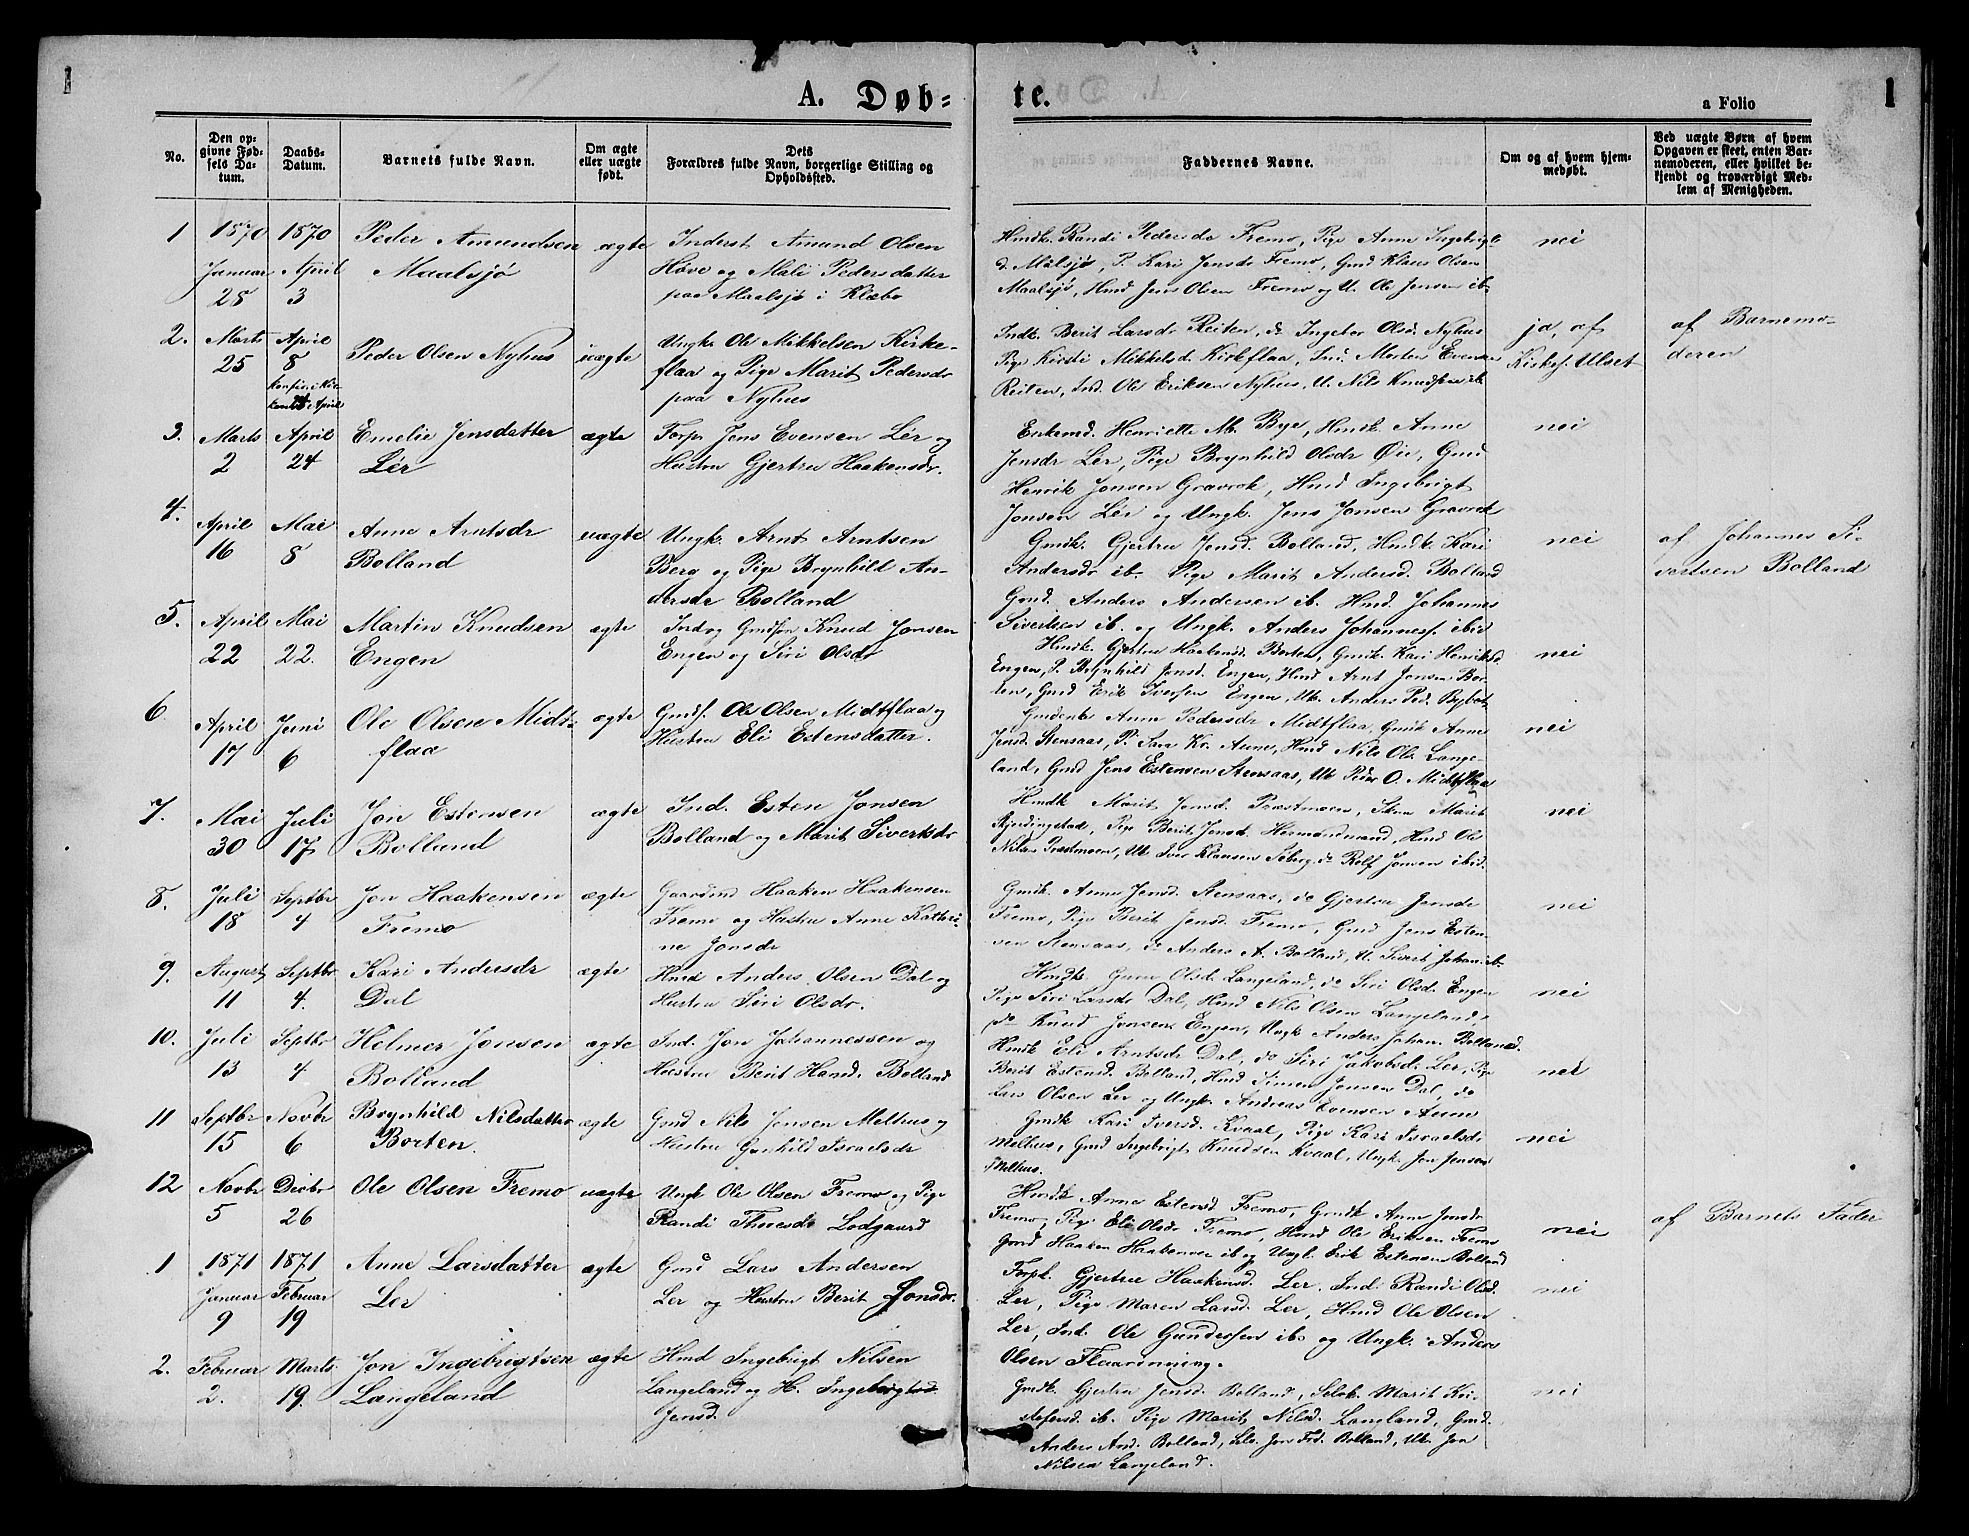 1
A. Døb=
te.
a Folio
1
No.
Den op=
givne Fød=
sels Da=
tum.
Daabs=
Datum.
Barnets fulde Navn.
Om ægte
eller uægte
født.
Dets
Forældres fulde Navn, borgerlige Stilling og
Opholdssted.
Faddernes Navne.
Om og af hvem hjem=
medøbt.
Ved uægte Børn af hvem
Opgaven er skeet, enten Bar=
nemoderen, eller hvilket be=
kjendt og troværdigt Med=
lem af Menigheden.
1
1870
Januar
28
1870
April
3
Peder Amundsen
Maalsjø
ægte
Inderst Amund Olsen
Høve og Mali Pedersdatter
paa Maalsjø i Klæbo
Hmdk. Randi Pedersdr Fremo, Pige Anne Ingebrigt
d. Målsjø, P. Kari Jensdr Fremo, Gmd Klaus Olsen
Maalsjø, Hmd Jens Olsen Fremo og U. Ole Jensen ib.
nei
2.
Marts
25
April
8
Peder Olsen Nyhus
uægte
Ungk. Ole Mikkelsen Kirke-
flaa og Pige Marit Pedersdr
paa Nyhus
Indk. Berit Larsdr Reiten, do Ingebor Olsd. Nyhus
Pige Kirsti Mikkelsd. Kirkflaa, Ind. Morten Evensen
Reiten, Ind. Ole Eriksen Nyhus, U. Nils Knudsen ib.
ja, af
Kirkes. Ulset
af Barnemo-
deren
3.
Marts
2
April
24
Emelie Jensdatter
Lér
ægte
Forp. Jens Evensen Lér og
Hustru Gjertru Haakensdr.
Enkemd. Henriette M. Bye, Hmdk. Anne
Jensdr Ler, Pige Brynhild Olsdr Øie, Gmd
Henrik Jonsen Gravrok, Hmd Ingebrigt
Jonsen Lér og Ungk. Jens Jonsen Gravrok
nei
4.
April
16
Mai
8
Anne Arntsdr
Bolland
uægte
Ungk. Arnt Arntsen
Berg og Pige Brynhild An-
dersdr Bolland
Gmdk. Gjertru Jensd. Bolland, Hmdk. Kari
Andersdr ib. Pige Marit Andersd. Bolland
Gmd. Anders Andersen ib. Hmd. Johannes
Sivertsen ib. og Ungk. Anders Johanness. ibid
nei
af Johannes Si-
vertsen Bolland
5.
April
22
Mai
22.
Martin Knudsen
Engen
ægte
Ind og Gmdsøn Knud Jonsen
Engen og Siri Olsdr
Hmdk. Gjertru Haakensd. Borten, Gmdk. Kari Henriksd.
Engen, P. Brynhild Jonsd. Engen, Hmd Arnt Jonsen Bor-
ten, Gmd Erik Iversen Engen, Uk. Anders Ped. Bybot
nei
6
April
17
Juni
6
Ole Olsen Midt-
flaa
ægte
Gmds. Ole Olsen Midtflaa og
Hustru Eli Estensdatter.
Gmdenke Anne Pedersdr Midtflaa, Gmdk Anne
Jensd. Stensaas, P. Sara Kr. Aune, Hmd Nils Ols. Lange-
land, Gmd Jens Estensen Stensaas, Uk Peder O. Midtflaa
nei
7.
Mai
30
Juli
17
Jon Estensen
Bolland
ægte
Ind. Esten Jonsen
Bolland og Marit Sivertsdr
Hmdk Marit Jensd. Præstmoen, Marit
Skjerdingstad, Pige Berit Jonsd. Hermandsmand, Hmd Ole
Nils. Præstmoen, Uk Iver Klausen Søberg, do Rolf Jonsen ibid.
nei
8.
Juli
18
Septbr
4
Jon Haakensen
Fremo
ægte
Gaardmd Haaken Haakensen
Fremo og Hustru Anne Kathri-
ne Jonsdr
Gmdk. Anne Jensd. Stensaas, do Gjertru Jonsdr
Fremo, Pige Berit Jensd. Fremo, Gmd Jens Esten-
sen Stensaas, do Anders A. Bolland, U. Sivert Johans. ib.
nei
9.
August
11
Septbr
4.
Kari Andersdr
Dal
ægte
Hmd Anders Olsen Dal og
Hustru Siri Olsdr.
Hmdk. Guru Olsd. Langeland, do Siri Olsd. Engen
Pige Siri Larsdr Dal, Hmd Nils Olsen Langeland,
do Knud Jonsen Engen, Ungk Anders Johan. Bolland.
nei
10.
Juli
13
Septbr
4
Helmer Jonsen
Bolland
ægte
Ind. Jon Johannessen og
Hustru Berit Hansd. Bolland
Hmdk Eli Arntsdr Dal, do Siri Jakobsd. Ler, Pige
Berit Estensd. Bolland, Hmd Simen Jensen Dal, do
Lars Olsen Ler og Ungk. Andreas Evensen Aune
nei
11
Septbr
15
Novbr
6
Brynhild Nilsdatter
Borten.
ægte
Gmd Nils Jensen Melhus og
Hustru Gunhild Israelsdr
Gmdk Kari Iversd. Kvaal, Pige Kari Israelsdr
Melhus, Gmd Ingebrigt Knudsen Kvaal, Ungk. Jon Jensen
Melhus.
nei
12
Novbr
5
Decbr
26
Ole Olsen Fremo
uægte
Ungk Ole Olsen Fremo og Pige
Randi Thoresdr Lodgaard
Hmdk Anne Estensd Fremo, Gmdk Anne Jonsdr
Fremo, Pige Eli Olsdr Fremo, Hmd Ole Eriksen Fremo
Gmd Haaken Haakensen ib og Ungk. Erik Estensen Bolland
nei
af Barnets Fader
1
1871
Januar
9
1871
Februar
19
Anne Larsdatter
Ler
ægte
Gmd Lars Andersen
Ler og Hustru Berit Jonsdr.
Forpk. Gjertru Haakensd. Ler, Ind. Randi Olsd.
Ler, Pige Maren Larsd. Ler, Hmd Ole Olsen
Ler, Ind. Ole Gundersen ib. og Ungk. Anders
Olsen Flaarønning.
nei
2.
Februar
2.
Marts
19.
Jon Ingebrigtsen
Langeland
ægte
Hmd Ingebrigt Nilsen
Langeland og H. Ingeborg
Jensd.
Gmdk. Gjertru Jensd. Bolland, Selvk. Marit Kri-
stofersd. ib. Pige Marit Nilsd. Langland, Gmd.
Anders And. Bolland, Selv. Jon Bolland, Uk. Jon
Nilsen Langeland.
nei